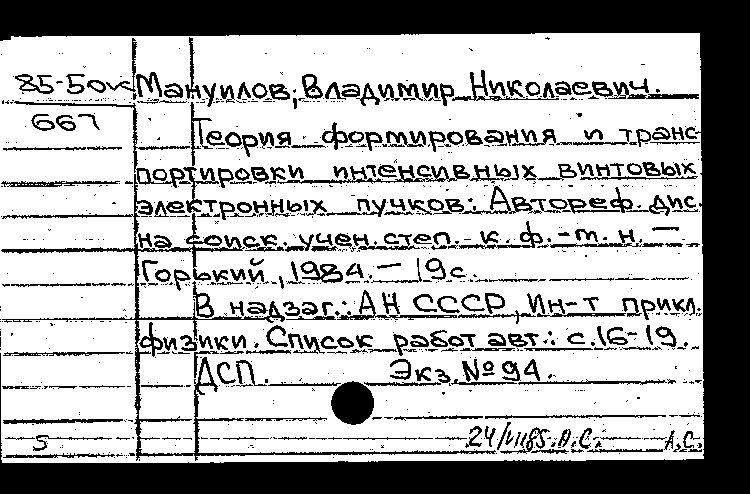 85-5о Мануилов, Владимир Николаевич.
667
Теория формирования и транс-
портировки интенсивных винтовых
электронных пучков: Автореф. дис.
на соиск. учен. степ. к. ф.-м. н. —
Горький, 1984. — 19 с.
В надзаг.: АН СССР, Ин-т прикл.
физики. Список работ авт.: с. 16-19.
ДСП. Экз. № 94.
S 24/VII85. О.С. А.С.